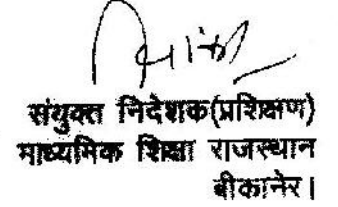 संयुक्त निदेशक(प्रशिक्षण)
माध्यमिक शिक्षा राजस्थान
बीकानेर।